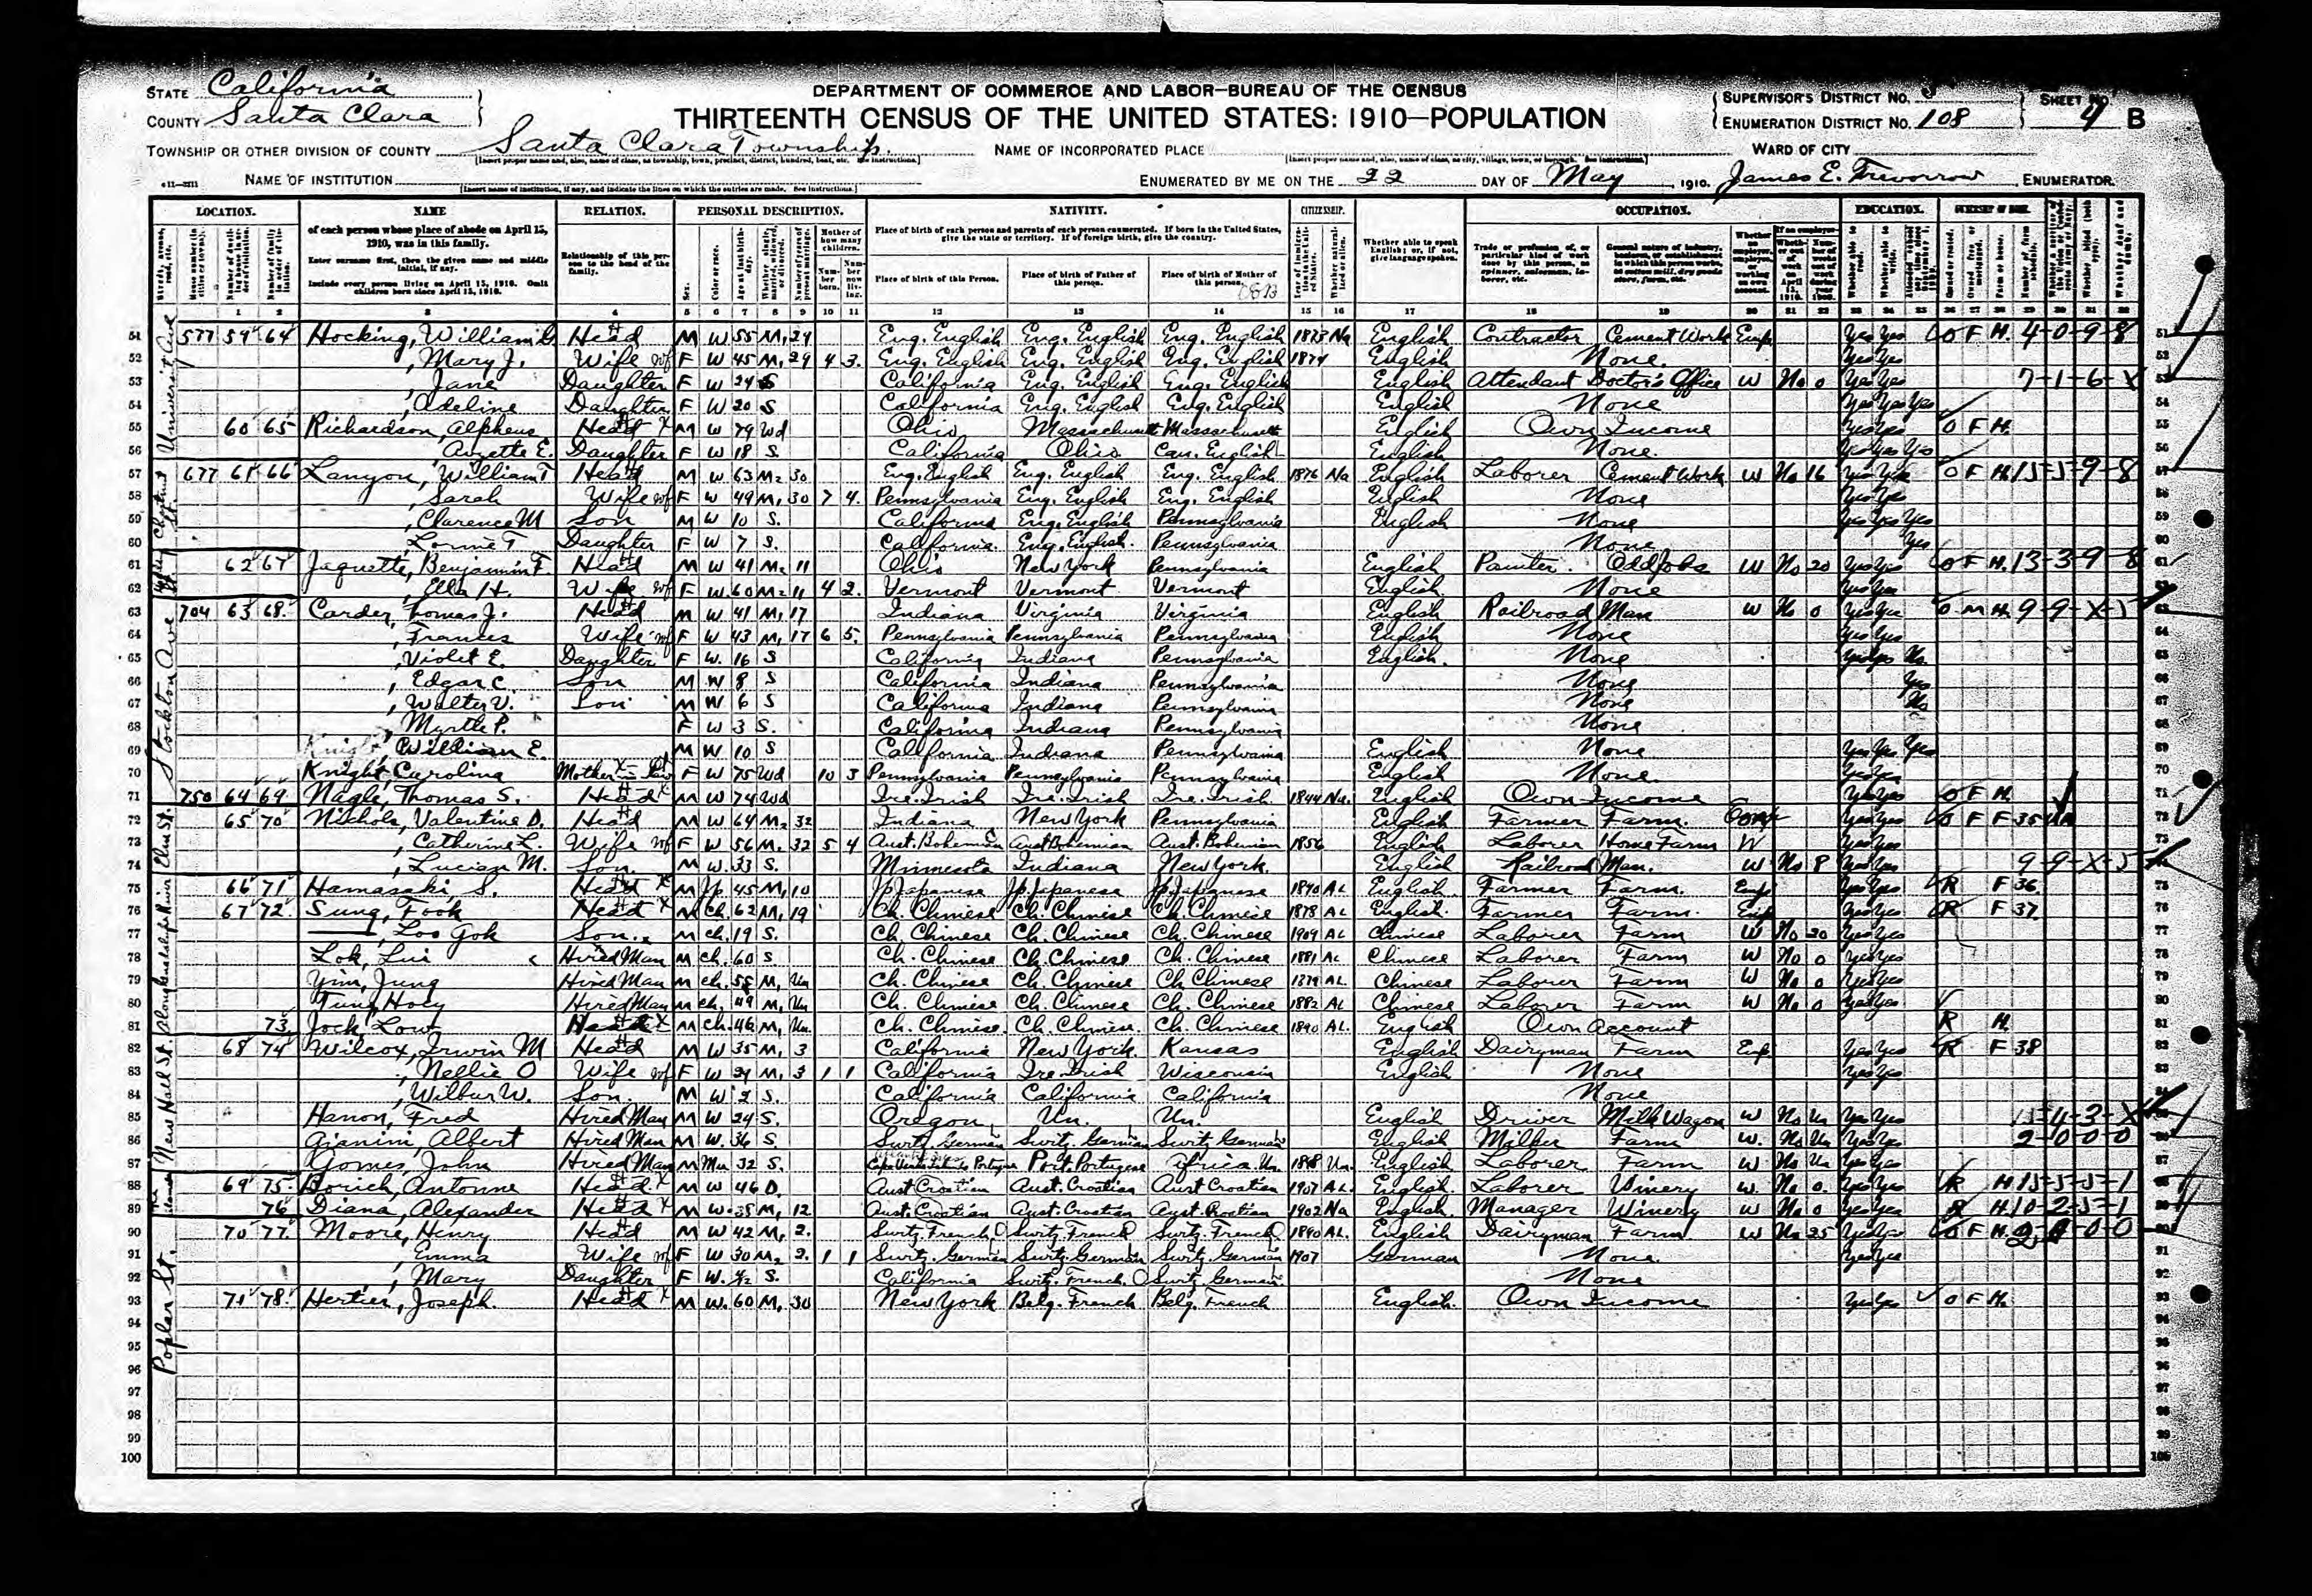 DEPARTMENT OF COMMERCE AND LABOR—BUREAU OF THE CENSUS
THIRTEENTH CENSUS OF THE UNITED STATES: 1910—POPULATION
STATE California
COUNTY Santa Clara
TOWNSHIP OR OTHER DIVISION OF COUNTY Santa Clara Township
NAME OF INSTITUTION
NAME OF INCORPORATED PLACE
SUPERVISOR'S DISTRICT NO.
ENUMERATION DISTRICT NO. 108
SHEET NO. 4 B
WARD OF CITY
ENUMERATED BY ME ON THE 22 DAY OF May, 1910. James E. Trevorrow, ENUMERATOR.
LOCATION. NAME RELATION. PERSONAL DESCRIPTION. NATIVITY. CITIZENSHIP. OCCUPATION. EDUCATION.
of each person whose place of abode on April 15, 1910, was in this family.
Enter surname first, then the given name and middle initial, if any.
Include every person living on April 15, 1910. Omit children born since April 15, 1910.
Relationship of this person to the head of the family.
Place of birth of each person and parents of each person enumerated. If born in the United States, give the state or territory. If of foreign birth, give the country.
Place of birth of this Person. Place of birth of Father of this person. Place of birth of Mother of this person.
Whether able to speak English; or, if not, give language spoken.
51 577 59 64 Hocking, William G. Head M W 55 M1 29 Eng. English Eng. English Eng. English 1873 Na English Contractor Cement Work Emp Yes Yes O F H. 4-0-9-8
52 , Mary J. Wife F W 45 M1 29 4 3 Eng. English Eng. English Eng. English 1874 English None Yes Yes
53 , Jane Daughter F W 24 S California Eng. English Eng. English English Attendant Doctor's Office W No 0 Yes Yes 7-1-6-X
54 , Adeline Daughter F W 20 S California Eng. English Eng. English English None Yes Yes Yes
55 60 65 Richardson, Alpheus Head M W 79 Wd Ohio Massachusetts Massachusetts English Own Income Yes Yes O F H.
56 E. Daughter F W 18 S California Ohio Can. English English None. Yes Yes Yes
57 677 61 66 Lanyon, William T Head M W 63 M2 30 Eng. English Eng. English Eng. English 1876 Na English Laborer Cement Work W No 16 Yes Yes O F H.
58 , Sarah Wife F W 49 M1 30 7 4. Pennsylvania Eng. English Eng. English English None Yes Yes
59 , Clarence M Son M W 10 S. California Eng. English Pennsylvania English None Yes Yes Yes
60 T Daughter F W 7 S. California. Eng. English. Pennsylvania None Yes
61 62 67 Jaquette, Benjamin F. Head M W 41 M1 11 Ohio New York Pennsylvania English Painter. Odd Jobs W No 20 Yes Yes O F H. 13-3-9-8
62 , Ella H. Wife F W 60 M2 11 4 2. Vermont Vermont Vermont English. None Yes Yes
63 704 63 68 Carder, Thomas J. Head M W 41 M1 17 Indiana Virginia Virginia English Railroad Man W No 0 Yes Yes O M H.
64 , Frances Wife F W 43 M1 17 6 5. Pennsylvania Pennsylvania Pennsylvania English None Yes Yes
65 , Violet E. Daughter F W. 16 S California Indiana Pennsylvania English. None Yes Yes No
66 , Edgar C. Son M W 8 S California Indiana Pennsylvania None Yes
67 , Walter V. Son M W 6 S California Indiana Pennsylvania None No
68 Myrtle P. F W 3 S. California Indiana Pennsylvania None
69 William E. M W 10 S California Indiana Pennsylvania English None Yes Yes Yes
70 Knight, Carolina Mother in Law F W 75 Wd 10 3 Pennsylvania Pennsylvania Pennsylvania English None. Yes Yes
71 750 64 69 Nagle, Thomas S. Head M W 74 Wd Ire. Irish Ire. Irish Ire. Irish. 1844 Na. English Own Income Yes Yes O F H.
72 65 70 Nichols, Valentine D. Head M W 64 M2 32 Indiana New York Pennsylvania English Farmer Farm. Yes Yes O F F 35
73 , Catherine L. Wife F W 56 M1 32 5 4 Aust. Bohemian Aust Bohemian Aust. Bohemian 1856 English Laborer Home Farm W Yes Yes
74 , Lucian M. Son. M W. 33 S. Minnesota Indiana New York. English Railroad Man. W No 8 Yes Yes
75 66 71 Hamasaki, S. Head M Jp 45 M1 10 Jp Japanese Jp Japanese Jp Japanese 1890 AL English. Farmer Farm. Emp Yes Yes R F 36
76 67 72 Sung, Fook Head M Ch. 62 M1 19 Ch. Chinese Ch. Chinese Ch. Chinese 1878 AL English. Farmer Farm. Emp Yes Yes R F 37
77 , Loo Gok Son. M Ch. 19 S. Ch. Chinese Ch. Chinese Ch. Chinese 1909 AL Chinese Laborer Farm W No 20 Yes Yes
78 Lok, Lui Hired Man M Ch. 60 S Ch. Chinese Ch. Chinese Ch. Chinese 1881 AL Chinese Laborer Farm W No 0 Yes Yes
79 Yim, Jung Hired Man M Ch. 55 M1 Un Ch. Chinese Ch. Chinese Ch. Chinese 1879 AL. Chinese Laborer Farm W No 0 Yes Yes
80 Tung, Hoey Hired Man M Ch. 49 M1 Un Ch. Chinese Ch. Chinese Ch. Chinese 1882 AL Chinese Laborer Farm W No 0 Yes Yes
81 73 Jock, Low Head M Ch. 46 M1 Un. Ch. Chinese. Ch. Chinese. Ch. Chinese 1890 AL. English Own Account R H.
82 68 74 Wilcox, Irwin M Head M W 35 M1 3 California New York. Kansas English Dairyman Farm Emp Yes Yes R F 38
83 , Nellie O Wife F W 29 M1 3 1 1 California Ire Irish Wisconsin English None Yes Yes
84 , Wilbur W. Son. M W 2 S. California California California None
85 Hanon, Fred Hired Man M W 24 S. Oregon Un. Un. English Driver Milk Wagon W No Un Yes Yes
86 Gianini, Albert Hired Man M W. 36 S. Switz. German Switz. German Switz German English Milker Farm W. No Un Yes Yes 2-0-0-0
87 Gomes, John Hired Man M Mu 32 S. Port. Portugese Africa. Un. English Laborer. Farm W No Un Yes Yes
88 69 75 Borich, Antonne Head M W 46 D. Aust Croatian Aust. Croatian Aust Croatian 1907 AL. English. Laborer Winery W. No 0. Yes Yes R H
89 76 Diana, Alexander Head M W. 38 M1 12 Aust. Croatian Aust. Croatian Aust. Croatian 1902 Na English. Manager Winery W No 0 Yes Yes R H. 10-2-5-1
90 70 77 Moore, Henry Head M W 42 M1 2. Switz. French Switz. French Switz. French 1890 AL. English Dairyman Farm W No 25 Yes Yes O F H.
91 , Emma Wife F W 30 M2 2. 1 1 Switz. German Switz. German Switz. German 1907 German None. Yes Yes
92 , Mary Daughter F W. S. California Switz. French. Switz. German None
93 71 78 Hertier, Joseph. Head M W. 60 M1 30 New York Belg. French Belg. French English. Own Income Yes Yes O F H.
94
95
96
97
98
99
100
University Ave
Stockton Ave
Elm St.
New Hall St.
Poplar St.